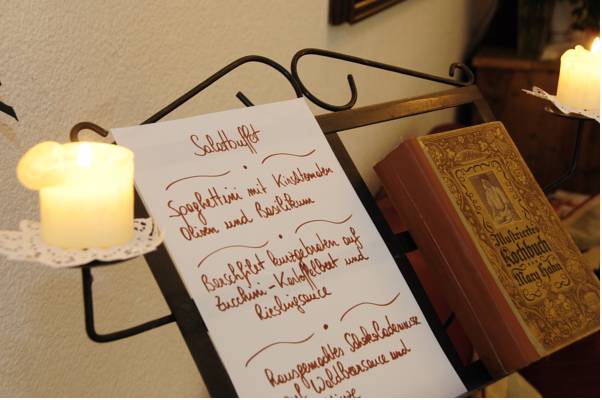 Salatbuffet
Spaghettini mit Kirschtomaten
Oliven und Basilikum
Barschfilet kurzgebraten auf
Zucchini-Kartoffelbeet und
Rieslingsauce
Hausgemachtes Schokoladenmousse
Waldbeersauce und
Illustriertes
Kochbuch
Mary Hahn